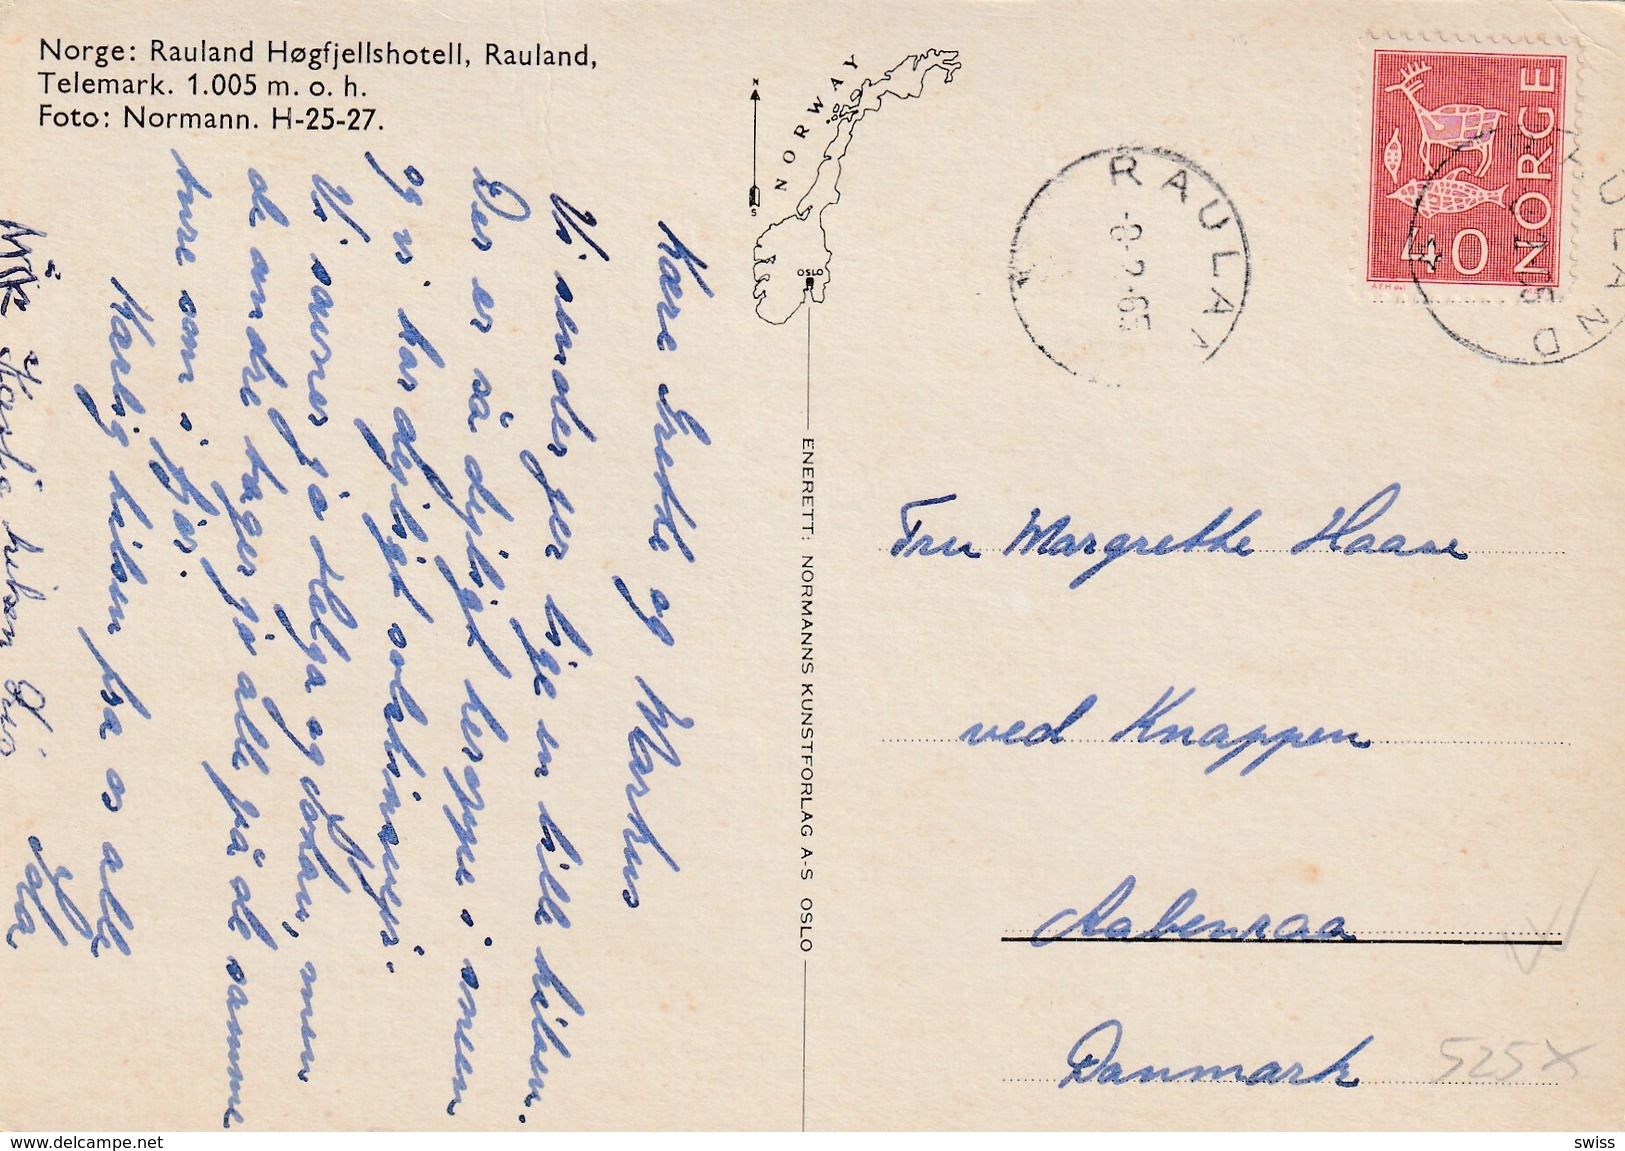 Norge: Rauland Høgfjellshotell, Rauland,
Telemark. 1.005 m. o. h.
Foto: Normann. H-25-27.
Kære Grethe og Markus
Vi sender jer lige en lille hilsen.
Der er så dejligt heroppe i sneen
og vi har dejligt solskinvejr.
Vi savner jo Helga og men
de andre tager jo alle på de samme
ture som i fjor.
Kærlig hilsen fra os alle
Kærlig hilsen Ida
N
S
NORWAY
OSLO
ENERETT: NORMANNS KUNSTFORLAG A-S OSLO
RAULA
-8-2-65
NORGE
40
AEH del.
RAULAND
Fru Margrethe Haase
ved Knappen
Aabenraa
Danmark
525X
www.delcampe.net
swiss